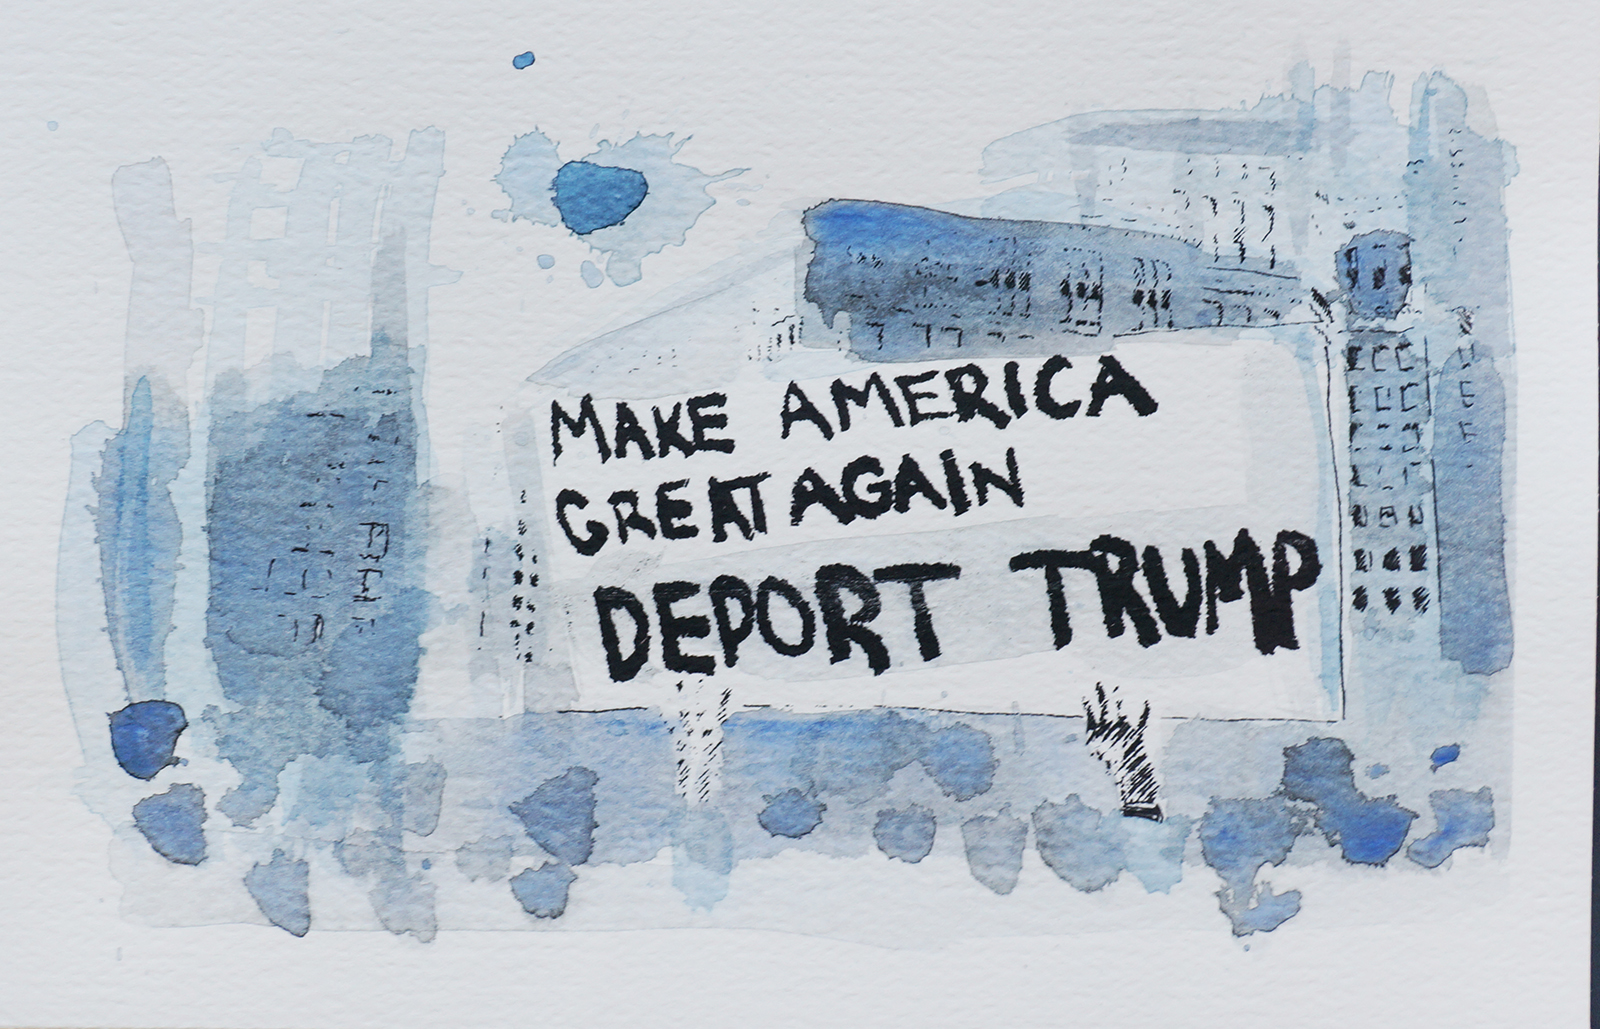 MAKE AMERICA
GREAT AGAIN
DEPORT TRUMP